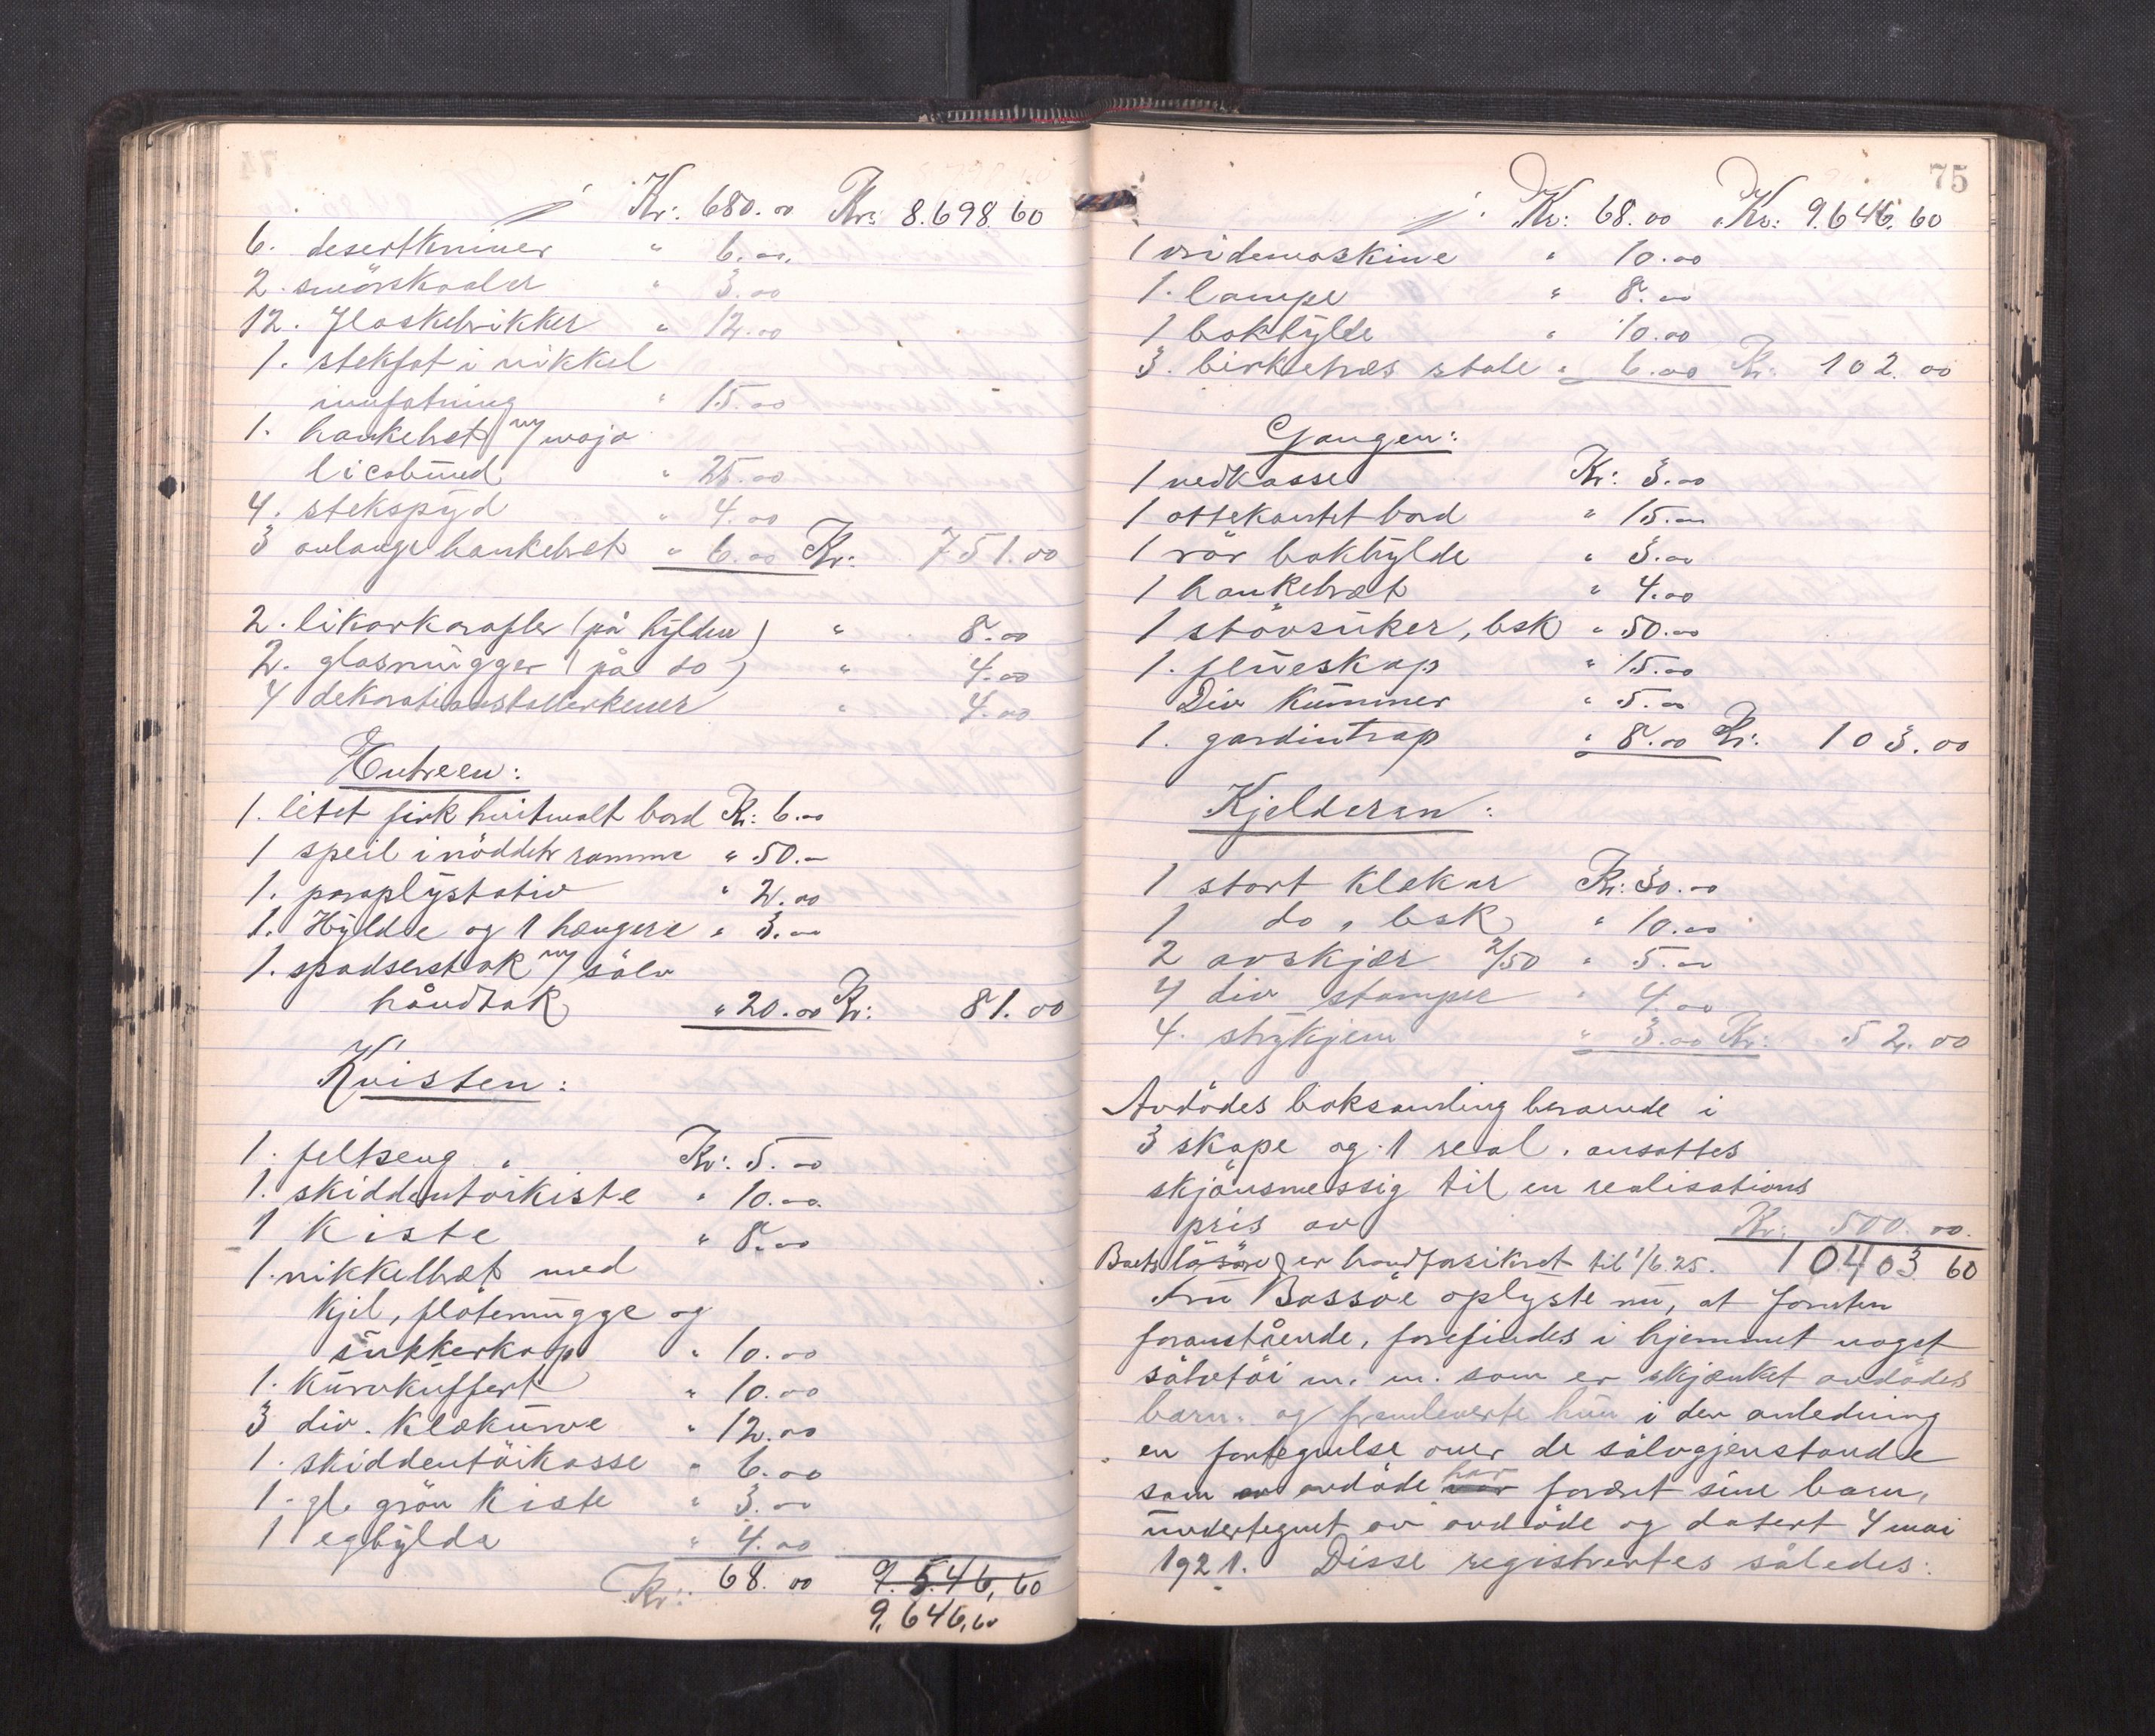 Kr: 680.00 Kr: 8.698.60
6. desertkniver " 6.00
2. smörskaaler " 3.00
12. Flaskebrikker " 12.00
1. stekfat i nikkel
innfatning " 15.00
1. bankebret m/ majo
licabund " 25.00
4. stekspyd " 4.00
3 avlange bankebret " 6.00 Kr: 751.00
2. likörkarafler (på hylden) " 8.00
2. glasmugger (på do) " 4.00
4 dekorationstallerkener " 4.00
Entreen:
1. litet firk hvitmalt bord Kr: 6.00
1 speil i nöddetr ramme " 50.-
1. paraplystativ " 2.00
1. Hylde og 1 hængere " 3.00
1. spadserstok m/ sölv
håndtak " 20.00 Kr: 81.00
Kvisten:
1. feltseng " Kr: 5.00
1. skiddentöikiste " 10.00
1 Kiste " 8.00
1. nikkelbræt med
kjel, flötemugge og
sukkerkop " 10.00
1. Kurvkuffert " 10.00
3 div. klækurve " 12.00
1. skiddentöikasse " 6.00
1. gl. grön kiste " 3.00
1 eghylde " 4.00
Kr: 68.00 9.546,60
9,646,60
75
Kr: 68.00 Kr: 9.646,60
1 vridemaskine " 10.00
1. lampe " 8.00
1 bokhylde " 10.00
3. birketræs stole " 6.00 Kr: 102.00
Gangen:
1 vedkasse Kr: 3.00
1 ottekantet bord " 15.00
1 rör bokhylde " 3.00
1 bankebræt " 4.00
1 stövsuker, bsk " 50.00
1. flueskap " 15.00
Div Kummer " 5.00
1. gardintrap " 8.00 Kr: 103.00
Kjelderen:
1 stort klekar Kr: 30.00
1 do, bsk " 10.00
2 avskjær 2/50 " 5.00
4 div stamper " 4.00
4. strykjern " 3.00 Kr: 52.00
Avdödes boksamling beroende i
3 skape og 1 reol. ansattes
skjönsmessig til en realisations
pris av Kr: 500.00.
Boets lösöre er brandforsikret til 1/6.25. 10403 60
Fru Bassöe oplyste nu, at foruten
foranstående, forefindes i hjemmet noget
sölvtöi m. m. som er skjænket avdödes
barn. og fremleverte hun i den anledning
en fortegnelse over de sölvgjenstande
som avdöde har foræret sine barn,
undertegnet av avdöde og datert 4 mai
1921. Disse registrertes således: